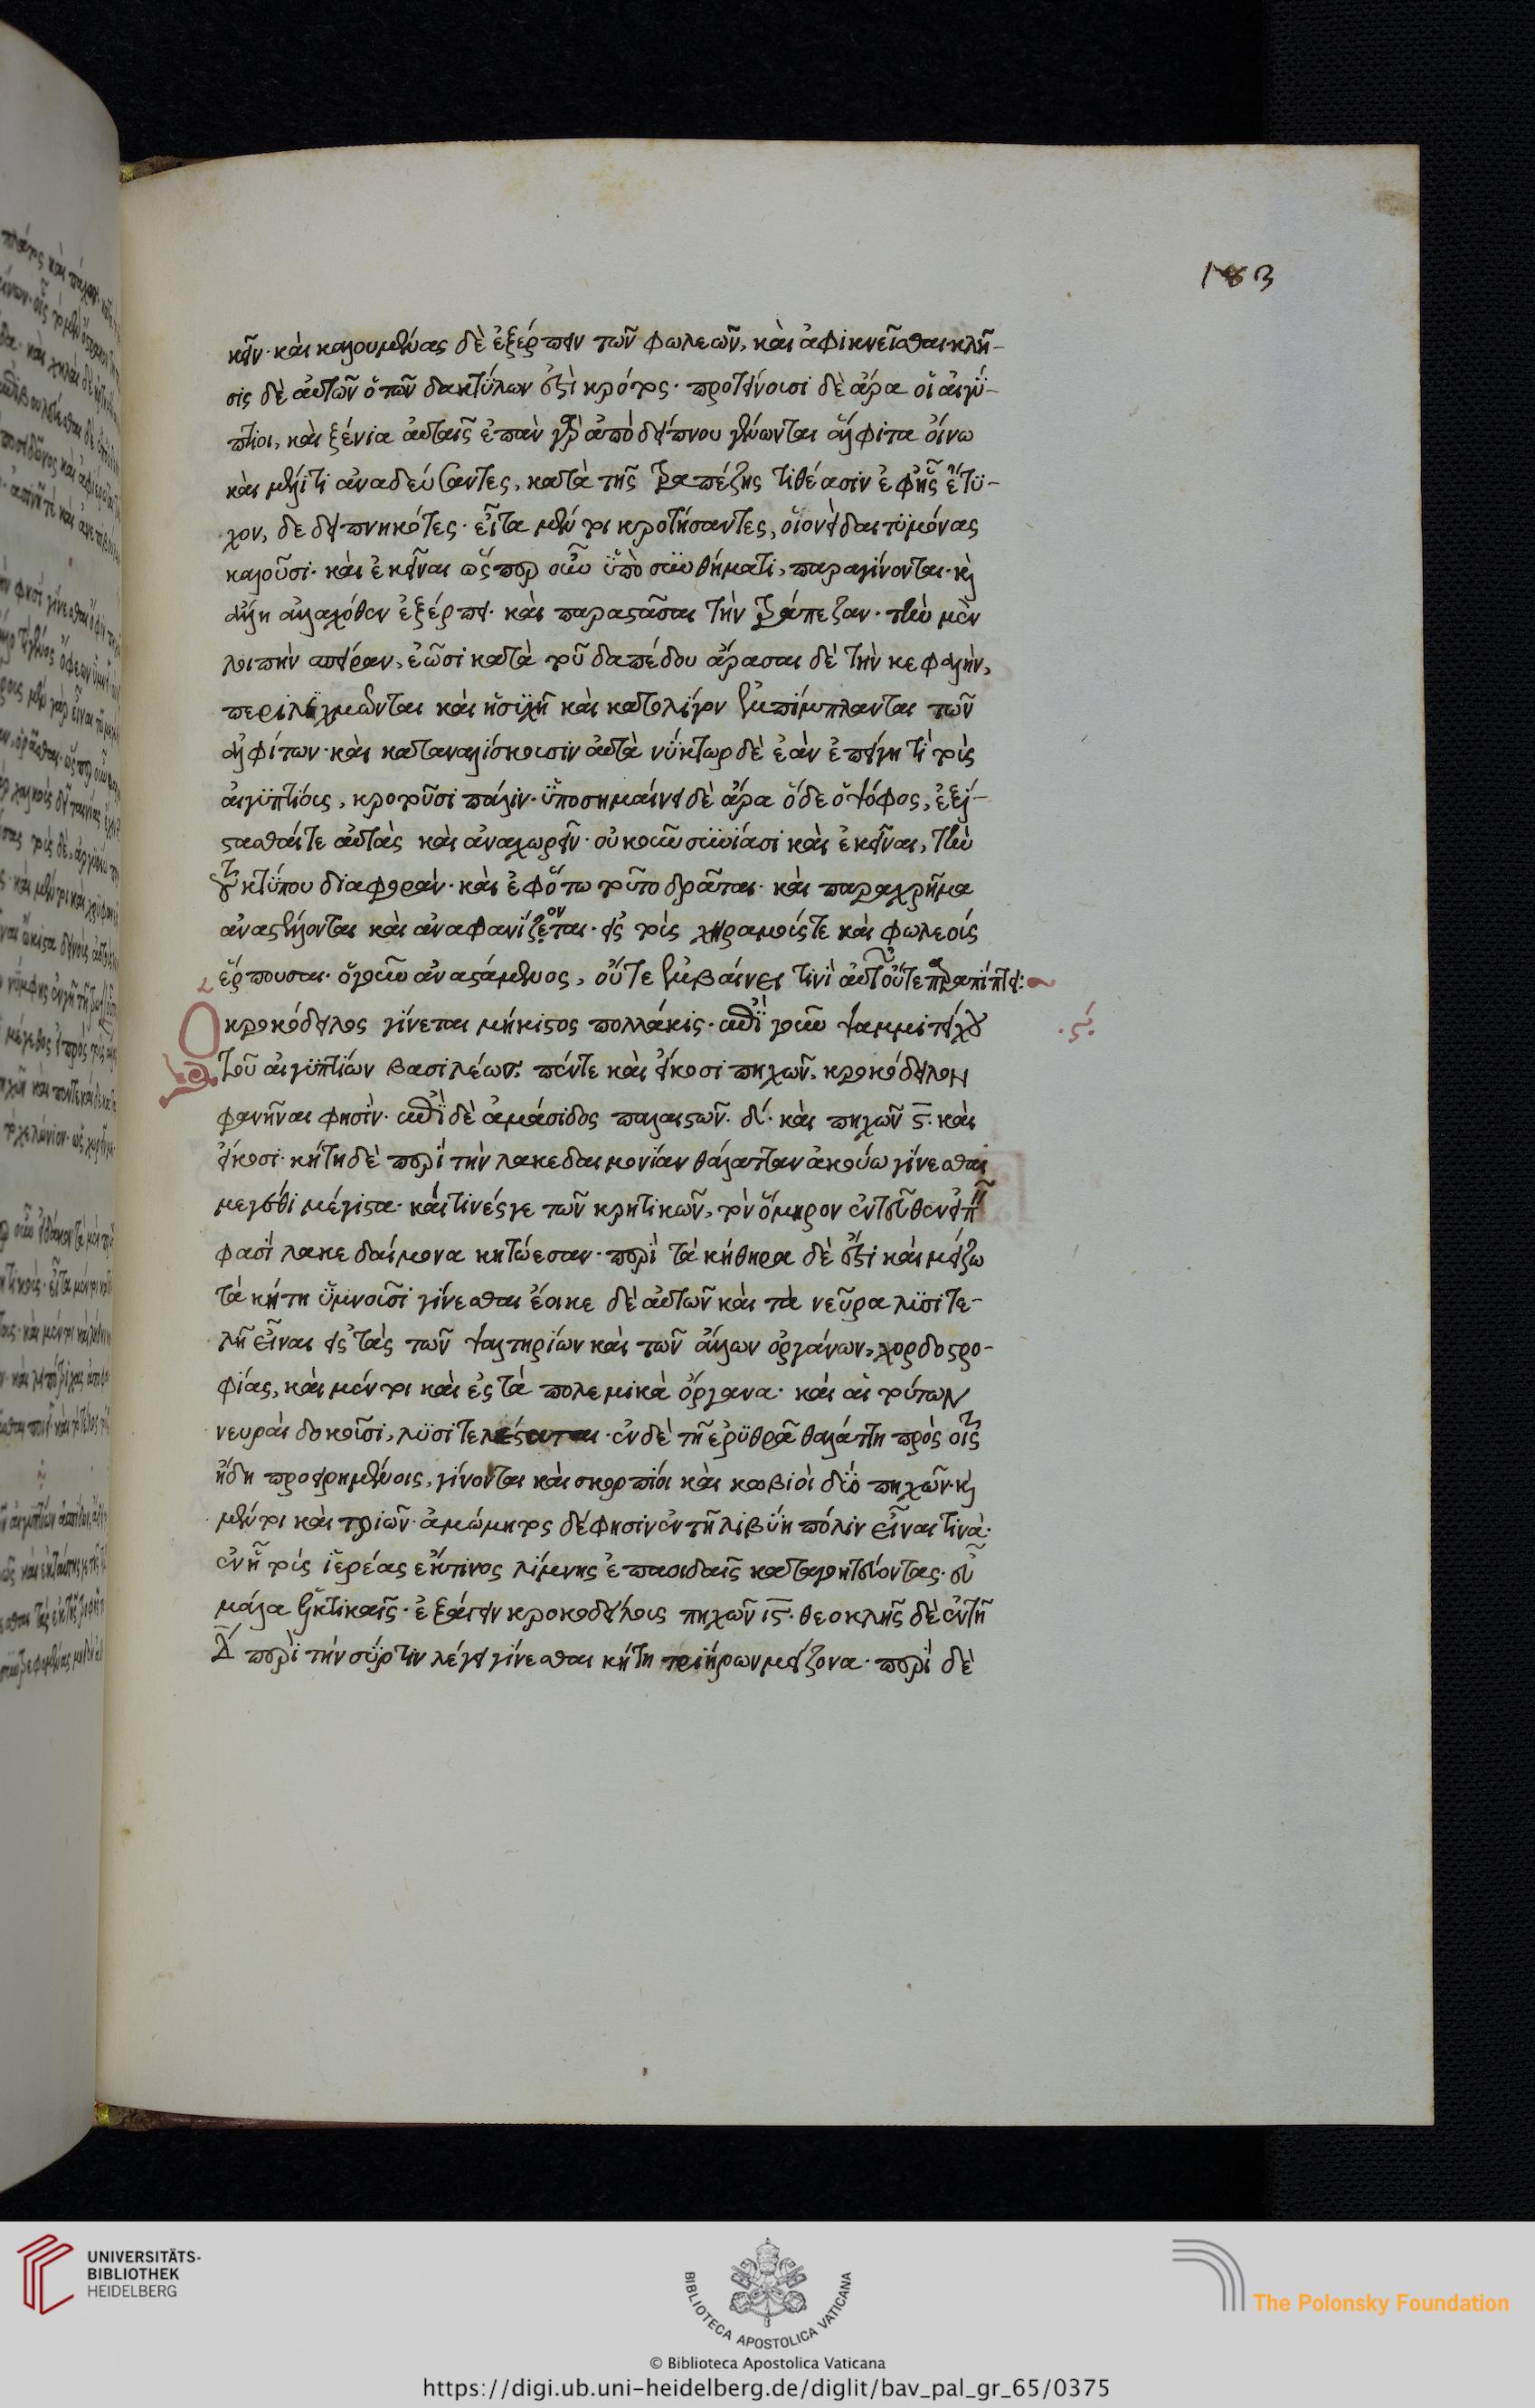 183
κεῖν· καὶ καλουμένας δὲ ἐξέρπειν τῶν φωλεῶν, καὶ ἀφικνεῖσθαι· κλῆ-
σις δὲ αὐτῶν ὁ τῶν δακτύλων ἐστὶ κρότος· προτείνουσι δὲ ἄρα οἱ αἰγύ-
πτιοι, καὶ ξένια αὐταῖς ἐπὰν γὰρ ἀπὸ δείπνου γένωνται ἄλφιτα οἴνω
καὶ μέλιτι ἀναδεύσαντες, κατὰ τῆς τραπέζης τιθέασιν ἐφῆς ἔτυ-
χον, δεδειπνηκότες· εἶτα μέντοι κροτήσαντες, οἱονεὶ δαιτυμόνας
καλοῦσι· καὶ ἐκεῖναι ὥσπερ οὖν ὑπὸ συνθήματι, παραγίνονται· καὶ
ἄλλη ἀλλαχόθεν ἐξέρπει· καὶ παραστᾶσαι τὴν τράπεζαν· τὴν μὲν
λοιπὴν σπεῖραν, ἐῶσι κατὰ τοῦ δαπέδου ἄρασαι δὲ τὴν κεφαλήν,
περιλιχμῶνται καὶ ἡσυχῆ καὶ κατολίγον ἐμπίμπλανται τῶν
ἀλφίτων· καὶ καταναλίσκουσιν αὐτὰ νύκτωρ δὲ ἐὰν ἐπείγη τι τοῖς
αἰγυπτίοις, κροτοῦσι πάλιν· ὑποσημαίνει δὲ ἄρα ὅδε ὁ ψόφος, ἐξί-
στασθαί τε αὐτὰς καὶ ἀναχωρεῖν· οὐκοῦν συνιᾶσι καὶ ἐκεῖναι, τὴν
τοῦ κτύπου διαφοράν· καὶ ἐφότω τοῦτο δρᾶται· καὶ παραχρῆμα
ἀναστέλλονται καὶ ἀναφανίζονται· εἰς τοὺς χηραμούς τε καὶ φωλεοὺς
ἕρπουσαι· ὁ γοῦν ἀναστάμενος, οὔτε ἐμβαίνει τινὶ αὐτῶν οὔτε παραπίπτει:
Ὁ κροκόδειλος γίνεται μήκιστος πολλάκις· ἐπὶ γοῦν ψαμμιτείχου
·ϛ·
τοῦ αἰγυπτίων βασιλέως, πέντε καὶ εἴκοσι πηχῶν, κροκόδειλον
φανῆναι φησίν· ἐπὶ δὲ ἀμάσιδος παλαιστῶν· δ· καὶ πηχῶν ϛ· καὶ
εἴκοσι· κήτη δὲ περὶ τὴν λακεδαιμονίαν θάλατταν ἀκούω γίνεσθαι
μεγέθει μέγιστα· καί τινές γε τῶν κρητικῶν, τὸν ὅμηρον ἐντεῦθεν εἰπεῖν
φασὶ λακεδαίμονα κητώεσαν· περὶ τὰ κύθηρα δὲ ἔτι καὶ μείζω
τὰ κήτη ὑμνοῦσι γίνεσθαι ἔοικε δὲ αὐτῶν καὶ τὰ νεῦρα λυσιτε-
λῆ εἶναι εἰς τὰς τῶν ψαλτηρίων καὶ τῶν ἄλλων ὀργάνων, χορδοστρο-
φίας, καὶ μέντοι καὶ ἐς τὰ πολεμικὰ ὄργανα· καὶ αἱ τούτων
νευραὶ δοκοῦσι, λυσιτελέσταται· ἐν δὲ τῆ ἐρυθρᾶ θαλάττη πρὸς τοῖς
ἤδη προειρημένοις, γίνονται καὶ σκορπίοι καὶ κωβιοὶ δύο πηχῶν· καὶ
μέντοι καὶ τριῶν· ἀμώμητος δέ φησιν ἐν τῆ λιβύη πόλιν εἶναι τινὰ·
ἐν ἧ τοὺς ἱερέας ἔκ τινος λίμνης ἐπαοιδαῖς καταγοητεύοντας· εὖ
μάλα ἑλκτικαῖς· ἐξάγειν κροκοδείλους πηχῶν ιϛ· θεοκλῆς δὲ ἐν τῆ
δ περὶ τὴν σύρτιν λέγει γίνεσθαι κήτη τριήρων μείζονα· περὶ δὲ
UNIVERSITÄTS-
BIBLIOTHEK
HEIDELBERG
BIBLIOTECA APOSTOLICA VATICANA
The Polonsky Foundation
© Biblioteca Apostolica Vaticana
https://digi.ub.uni-heidelberg.de/diglit/bav_pal_gr_65/0375